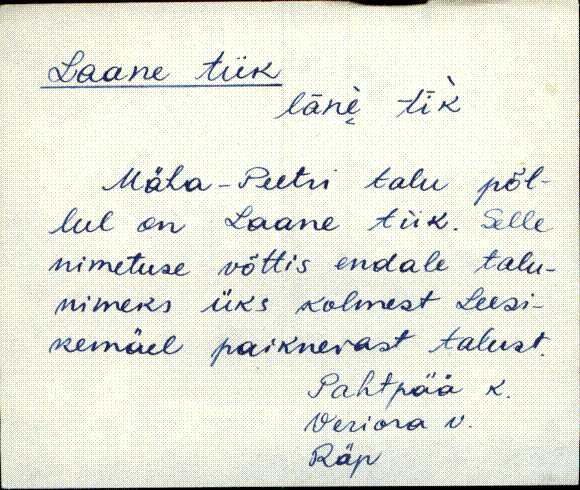 Laane tiik
lāǹe̬ tī̀k
Mäha-Peetri talu põl-
lul on Laane tiik. Selle
nimetuse võttis endale talu-
nimeks üks kolmest Leesi-
kemäel paiknevast talust.
Pahtpää k.
Veriora v.
Räp